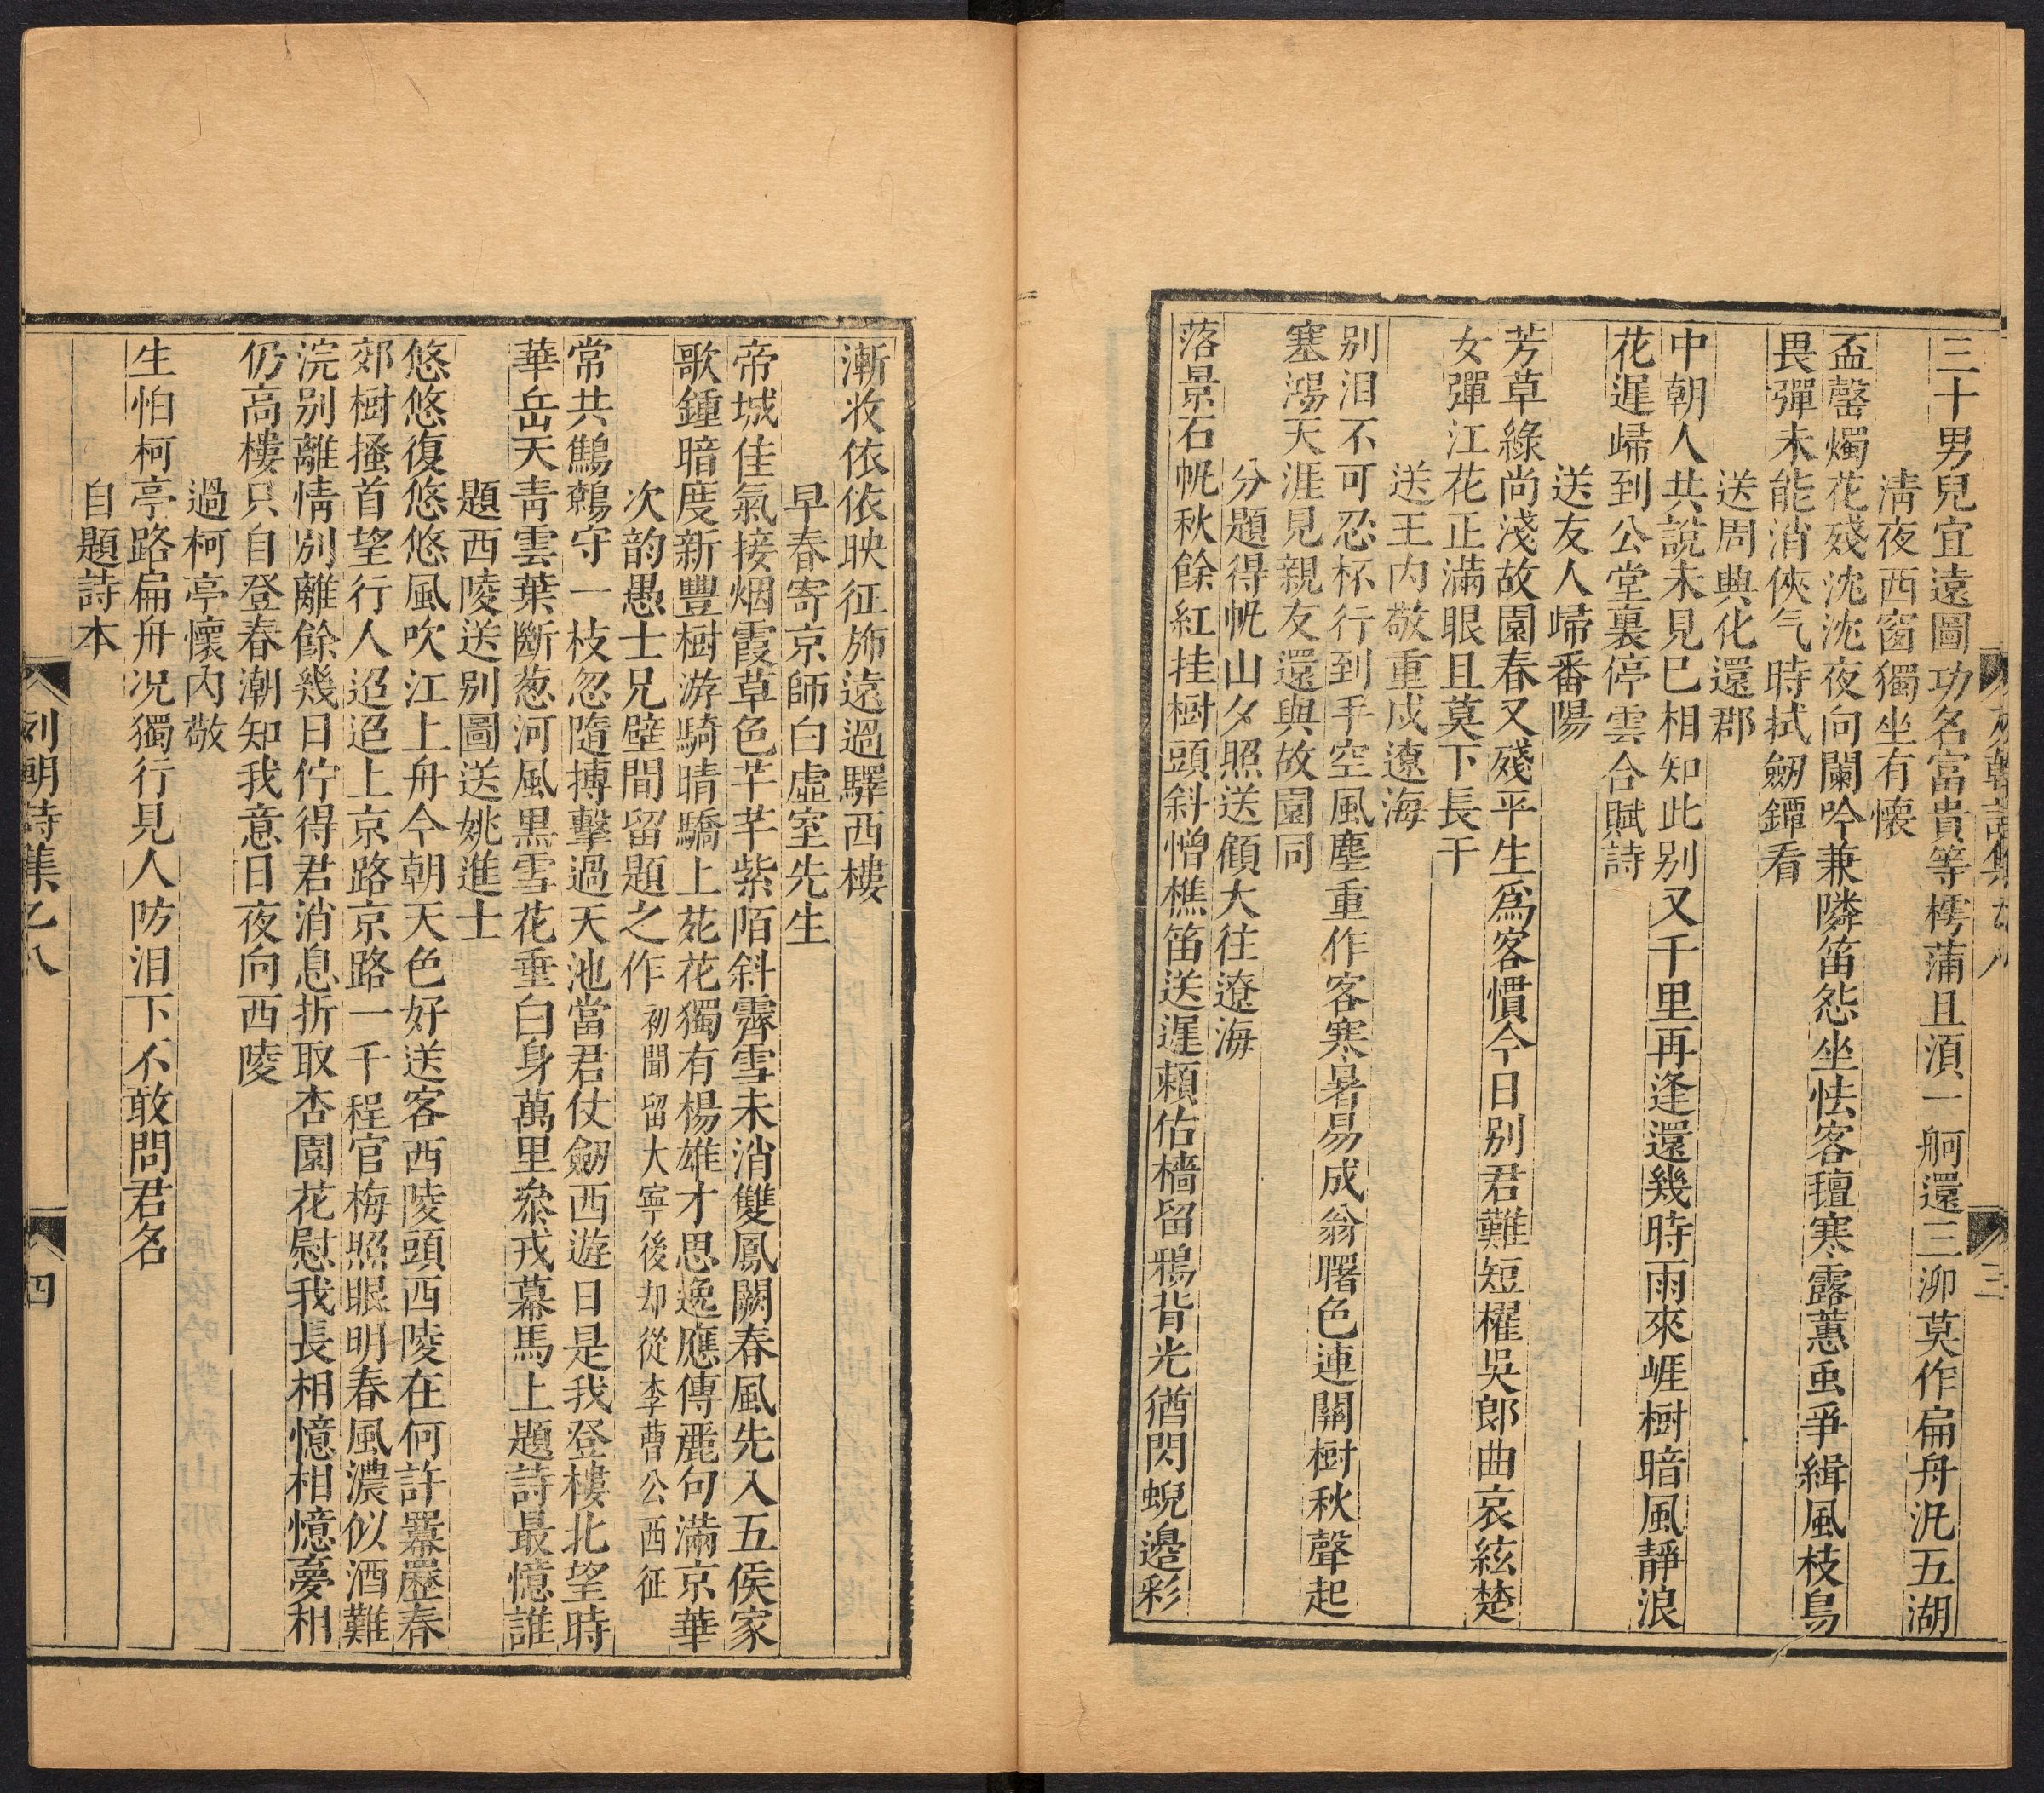 三十男兒宜遠圖功名富貴等樗蒲且湏一舸還三泖莫作扁舟汎五湖
清夜西窗獨坐有懷
盃罄燭花殘沈沈夜向闌吟兼隣笛怨坐怯客氊寒露蕙虫爭緝風枝鳥
畏彈未能消俠气時拭劒鐔看
送周興化還郡
中朝人共說未見巳相知此别又千里再逢還幾時雨來崕樹暗風靜浪
花遲歸到公堂裏停雲合賦詩
送友人歸番陽
芳草綠尚淺故園春又殘平生爲客慣今日别君難短櫂吳郎曲哀絃楚
女彈江花正滿眼且莫下長干
送王内敬重戍遼海
别泪不可忍杯行到手空風塵重作客寒暑易成翁曙色連關樹秋聲起
塞鴻天涯見親友還與故園同
分題得帆山夕照送顧大往遼海
落景石帆秋餘紅挂樹頭斜憎樵笛送遲頼估檣留鴉背光猶閃蜺邊彩
漸收依依映征斾遠過驛西樓
早春寄京師白虛室先生
帝城佳氣接烟霞草色芊芊紫陌斜霽雪未消雙鳳闕春風先入五侯家
歌鍾暗度新豐樹游騎晴驕上苑花獨有楊雄才思逸應傳麗句滿京華
次韵愚士兄壁間留題之作 初聞留大寧後却從李曹公西征
常共鷦鷯守一枝忽隨搏擊過天池當君仗劒西遊日是我登樓北望時
華岳天靑雲葉斷葱河風黒雪花垂白身萬里叅戎幕馬上題詩最憶誰
題西陵送别圖送姚進士
悠悠復悠悠風吹江上舟今朝天色好送客西陵頭西陵在何許羃䍥春
郊樹搔首望行人迢迢上京路京路一千程官梅照眼明春風濃似酒難
浣别離情别離餘幾日佇得君消息折取杏園花慰我長相憶相憶夢相
仍高樓只自登春潮知我意日夜向西陵
過柯亭懷内敬
生怕柯亭路扁舟况獨行見人防泪下不敢問君名
自題詩本
列朝詩集乙八
四